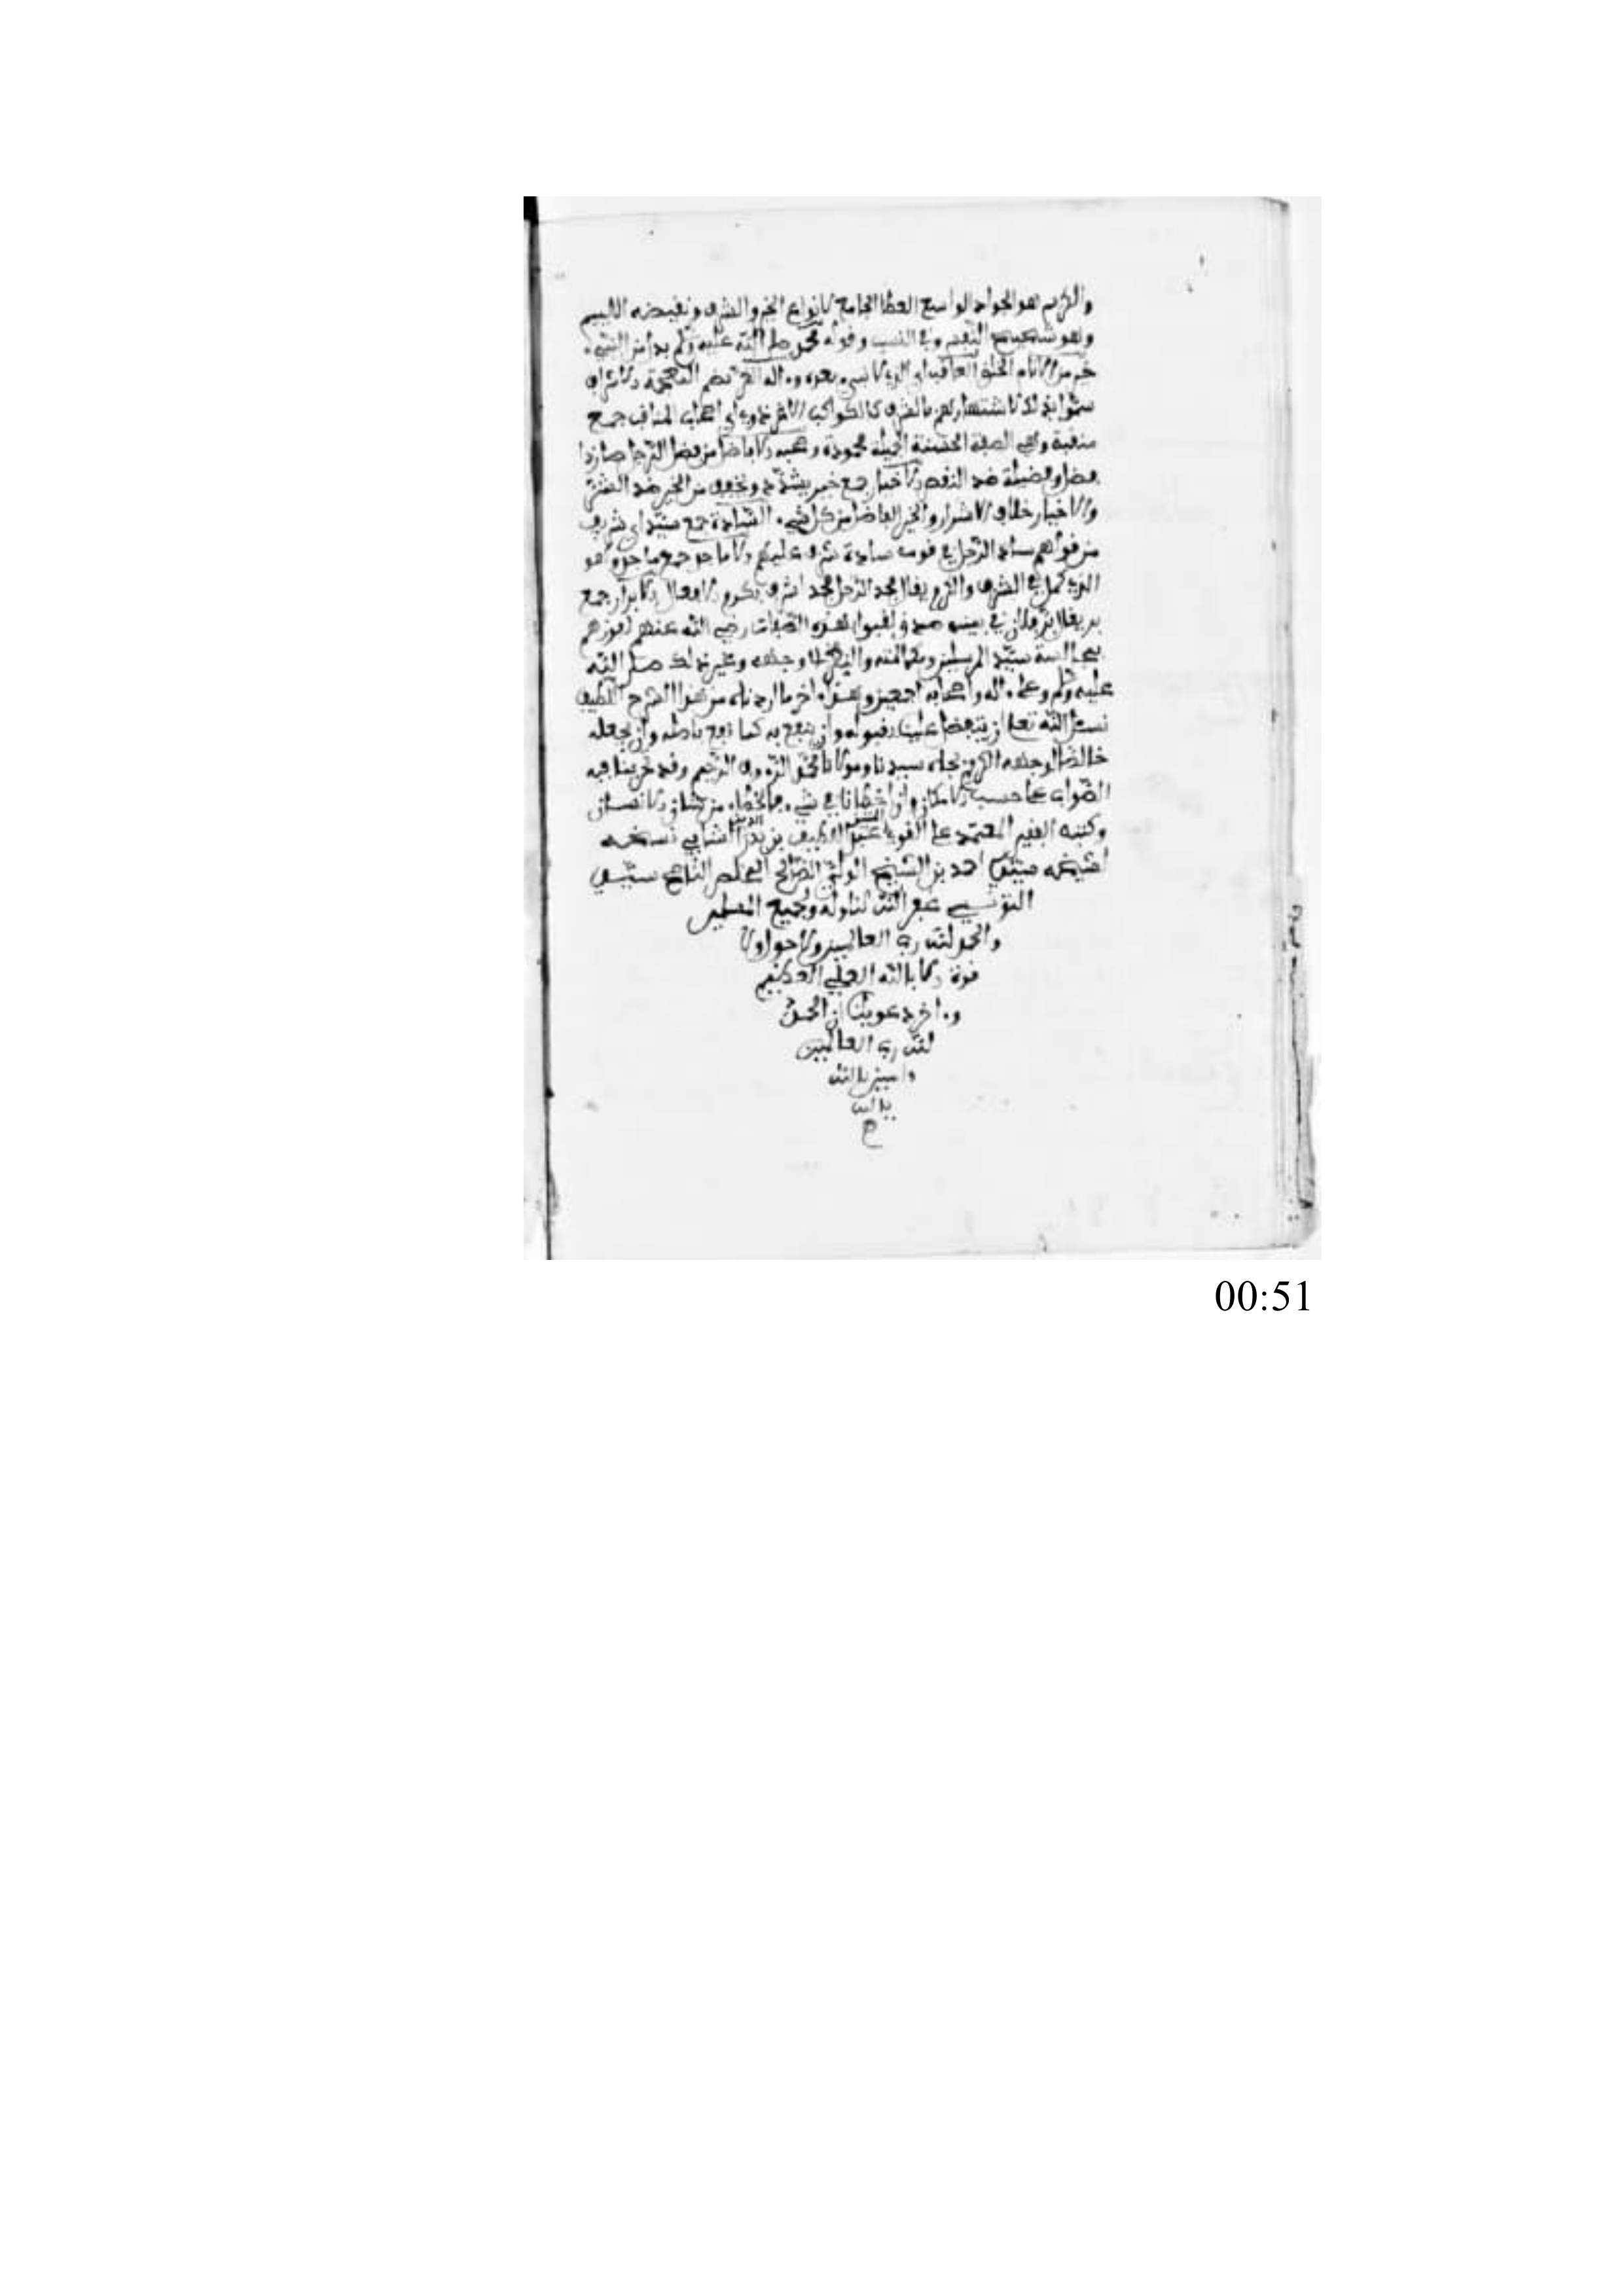 والكريم هو الجواد الواسع العطا الجامع لانواع الخير والشرف ونقيضه اللييم
وهو شحيح النفس وفي النسب وقوله محمد صلى الله عليه وسلم بدل من النبي
خير من الانام الخلق العاقب اي الذي لا نبي بعده وءاله الغر بضم المعجمة
سموا بذلك لاشتهارهم بالشرف كالكواكب اي اصحاب المناقب جمع
منقبة وهي الصفة الحسنة الجميلة محمودة الافاضل من فضل الرجل صار ذا
فضل وفضيلة ضد النقص الاخيار جمع خير يشدد ويخفف من الخير ضد الشر
والاخيار خلاف الاشرار والخير الفاضل من كل شيء السادة جمع سيد اي شريف
من قولهم ساد الرجل في قومه سادة شرف عليهم الاماجد جمع ماجد وهو
الذي كمل في الشرف يقال مجد الرجل مجدا شرف بكرم الافعال الابرار جمع
بر يقال بر فلان في يمينه صدق لقبوا بهذه الصفات رضي الله عنهم لفوزهم
بمجالسة سيد المرسلين ومكالمته والنظر لوجهه وغير ذلك صلى الله
عليه وسلم وعلى ءاله واصحابه اجمعين وهذا ءاخر ما اردناه من هذا الشرح اللطيف
نسئل الله تعلى ان يتفضل علينا بقبوله وان ينفع به كما نفع باصله وان يجعله
خالصا لوجهه الكريم بجاه سيدنا ومولانا محمد الرءوف الرحيم وقد تحرينا فيه
الصواب على حسب الامكان وان اخطانا في شيء فالخطاء من شان الانسان
وكتبه الفقير المعتمد على القوي عبد اللطيف بن نسخه
لشيخه سيدي احمد بن الشيخ الولي الصالح الناصح سيدي
التونسي غفر الله لنا وله ولجميع المسلمين
والحمد لله رب العالمين ولا حول ولا
قوة الا بالله العلي العظيم
وءاخر دعوينا ان الحمد
لله رب العالمين
ءامين يا الله
يا الله
00:51